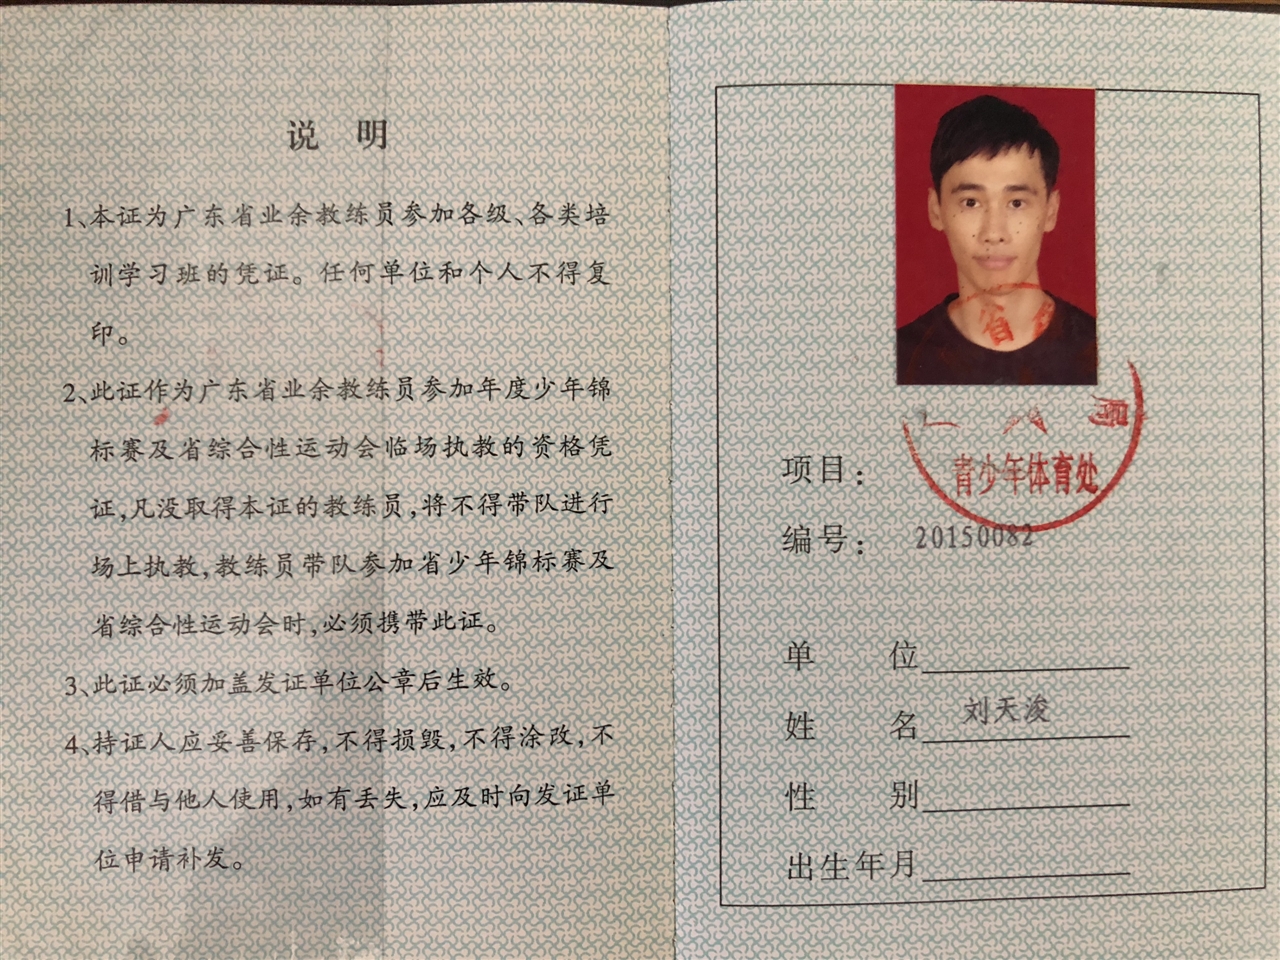 说 明
1、本证为广东省业余教练员参加各级、各类培
训学习班的凭证。任何单位和个人不得复
印。
2、此证作为广东省业余教练员参加年度少年锦
标赛及省综合性运动会临场执教的资格凭
证,凡没取得本证的教练员,将不得带队进行
场上执教,教练员带队参加省少年锦标赛及
省综合性运动会时,必须携带此证。
3、此证必须加盖发证单位公章后生效。
4、持证人应妥善保存,不得损毁,不得涂改,不
得借与他人使用,如有丢失,应及时向发证单
位申请补发。
省
局
青少年体育处
项目：
编号： 20150082
单 位
姓 名 刘天浚
性 别
出生年月